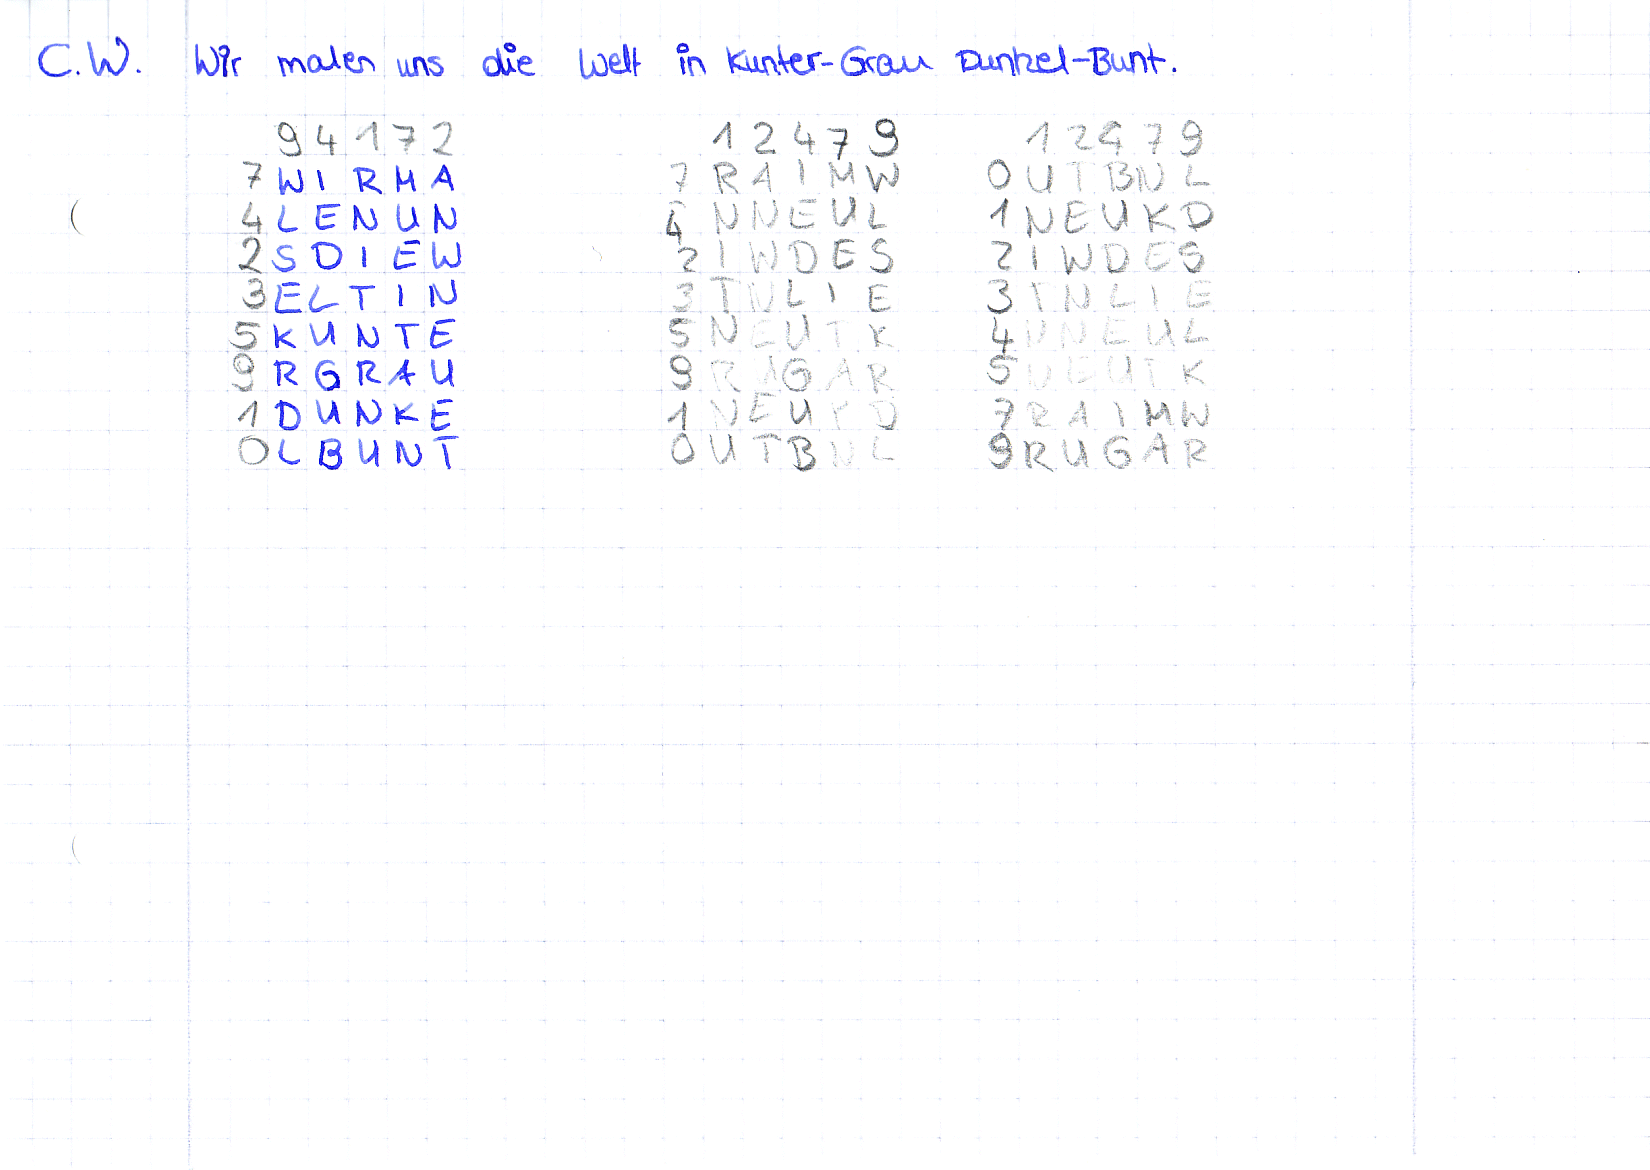 C.W. Wir malen uns die Welt in Kunter-Grau Dunkel-Bunt.
9 4 1 7 2 1 2 4 7 9 1 2 4 7 9
7 W I R M A 7 R A I M W 0 U T B N L
4 L E N U N 4 N N E U L 1 N E U K D
2 S D I E W 2 I W D E S 2 I W D E S
3 E L T I N 3 T N L I E 3 T N L I E
5 K U N T E 5 N E U T K 4 N N E U L
9 R G R A U 9 R U G A R 5 N E U T K
1 D U N K E 1 N E U K D 7 R A I M W
0 L B U N T 0 U T B N L 9 R U G A R